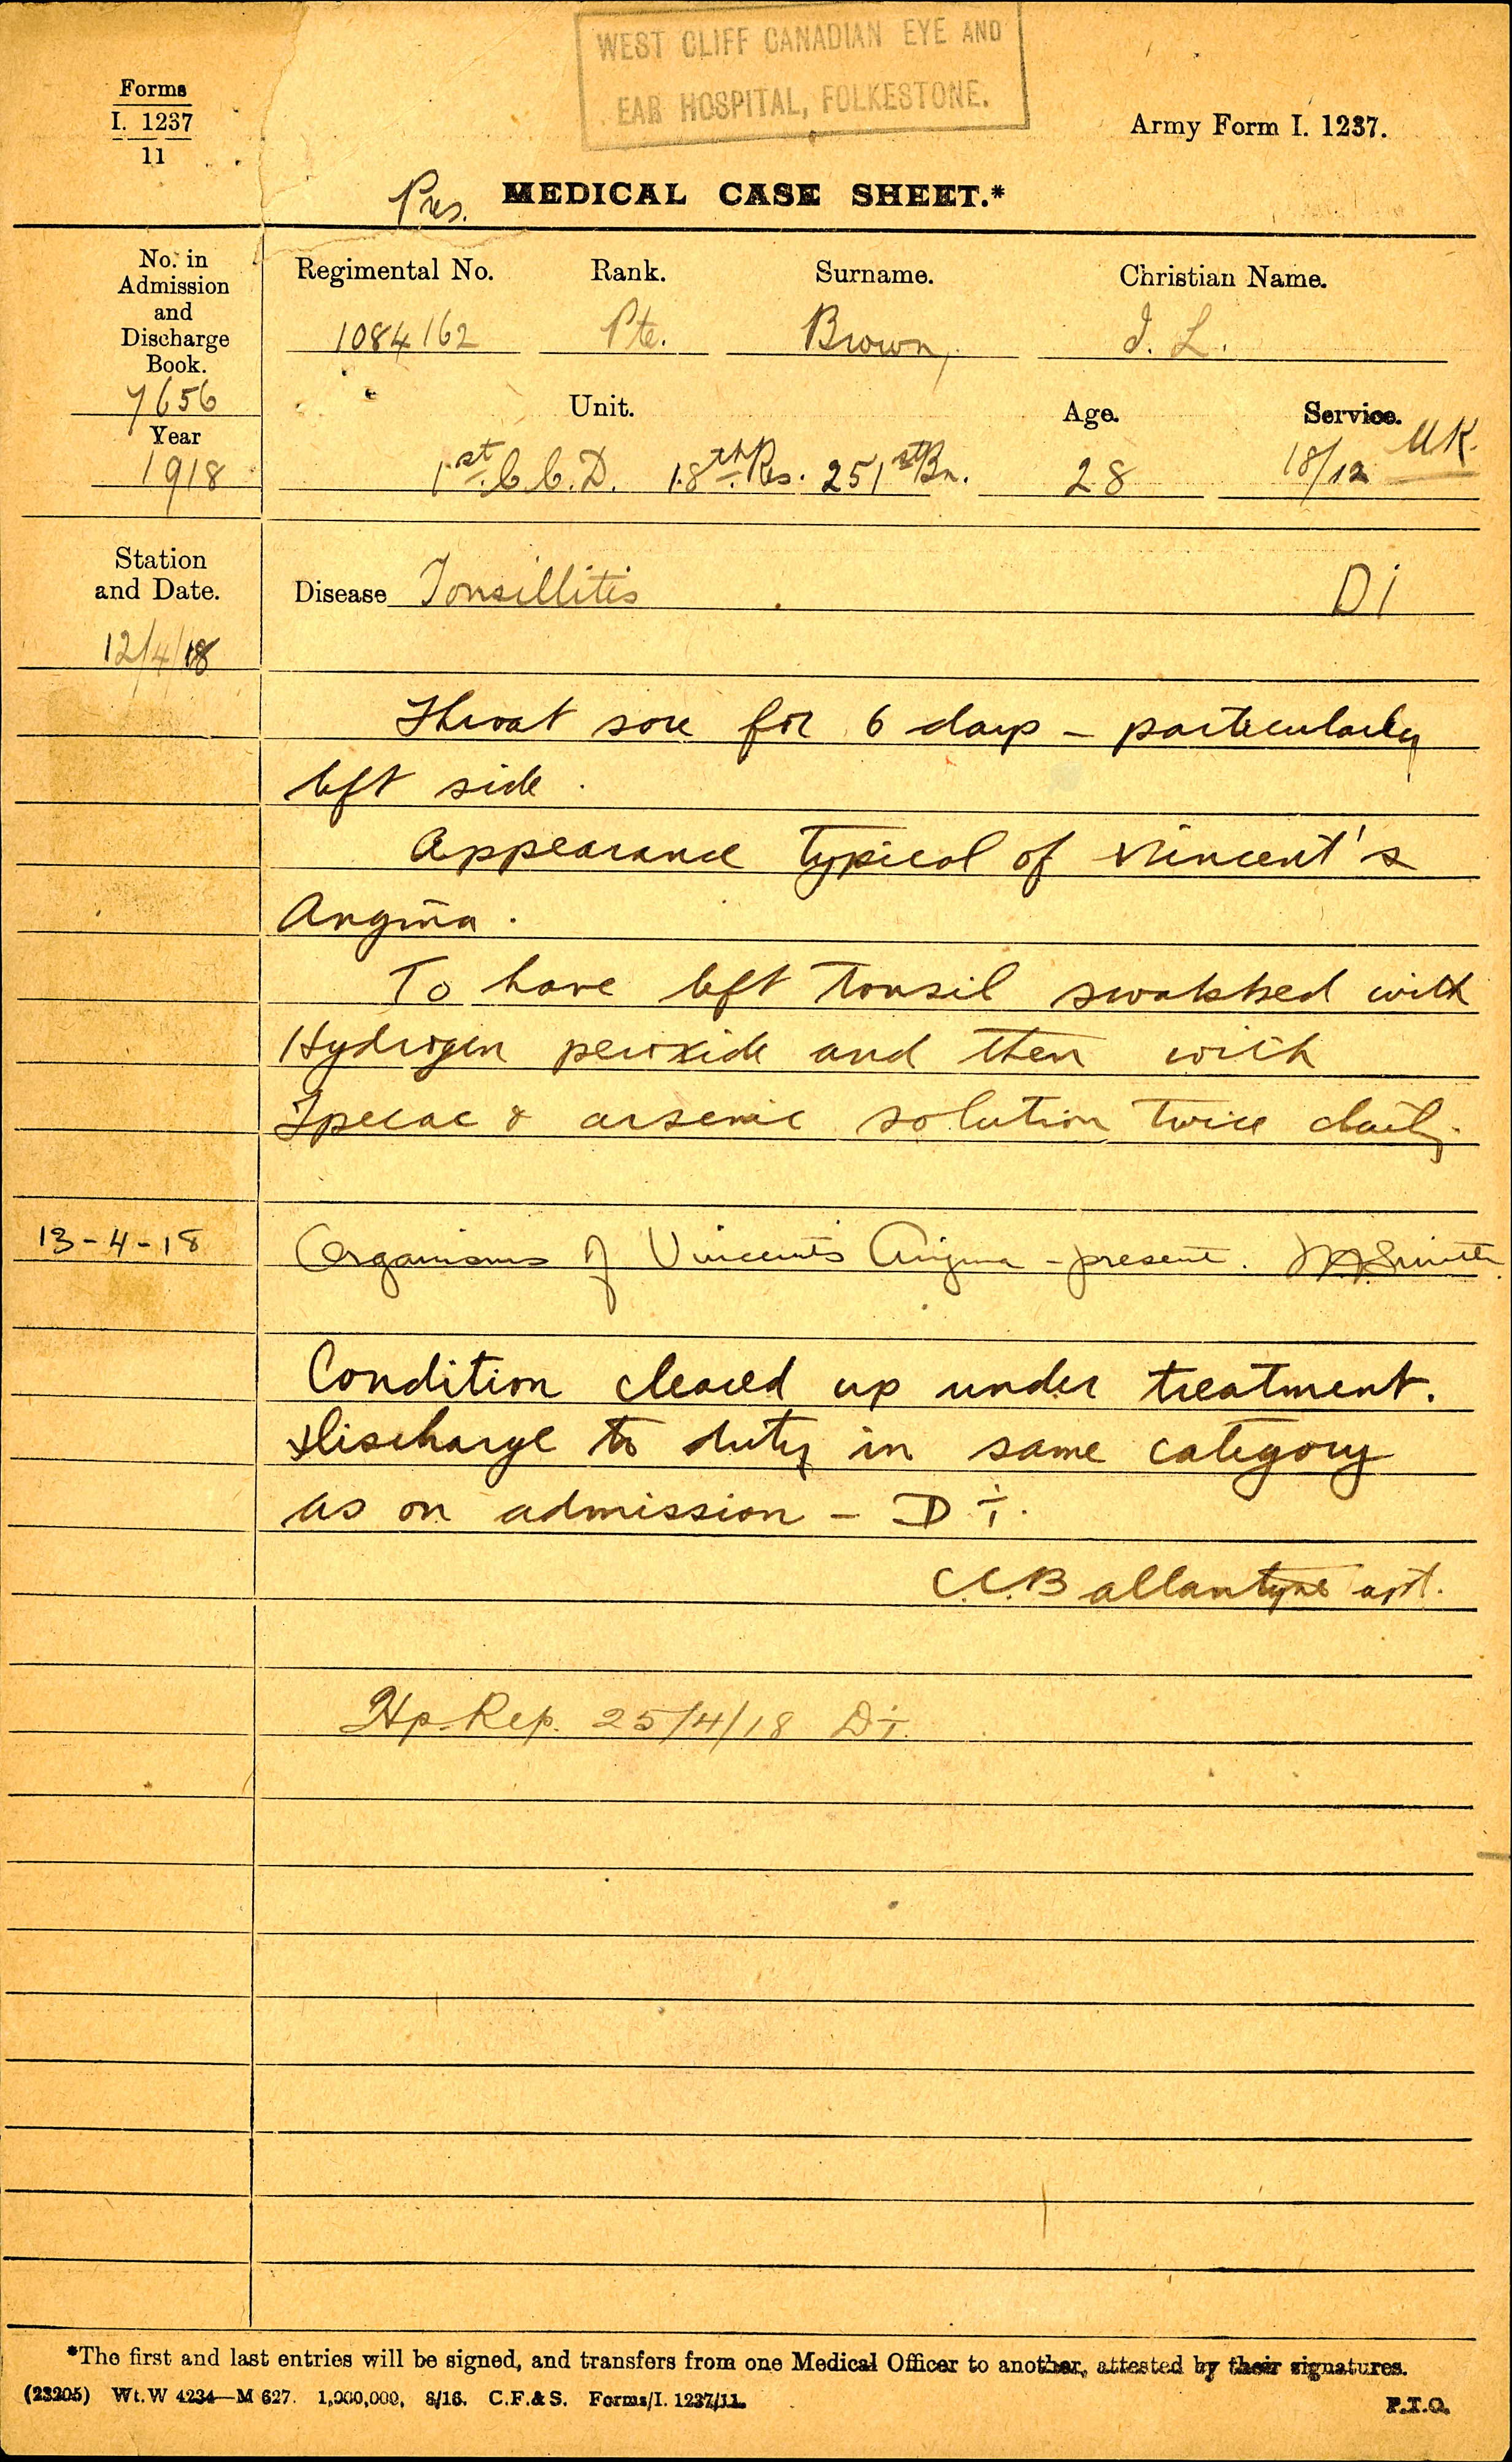 WEST CLIFF CANADIAN EYE AND
EAR HOSPITAL, FOLKESTONE.
Forms
I. 1237
11
Army Form I. 1237.
Pres. MEDICAL CASE SHEET.*
No. in
Admission
and
Discharge
Book.
7656
Year
1918
Regimental No. Rank. Surname. Christian Name.
1084162 Pte. Brown, I. L.
Unit. Age. Service.
1st. C.C.D. 18th. Res. 251st Bn. 28 18/12 UK.
Station
and Date.
Disease Tonsillitis Di
12/4/18
Throat sore for 6 days - particularly
left side.
Appearance typical of Vincent's
Angina.
To have left tonsil swabbed with
Hydrogen peroxide and then with
Ipecac & arsenic solution twice daily.
13-4-18 Organisms of Vincent's Angina - present. Smith
Condition cleared up under treatment.
Discharge to duty in same category
as on admission - D i.
C.C. Ballantyne
Hp. Rep. 25/4/18 Di.
*The first and last entries will be signed, and transfers from one Medical Officer to another, attested by their signatures.
(23205) Wt. W 4234—M 627. 1,000,000. 8/16. C.F.&S. Forms/I. 1237/11.
P.T.O.